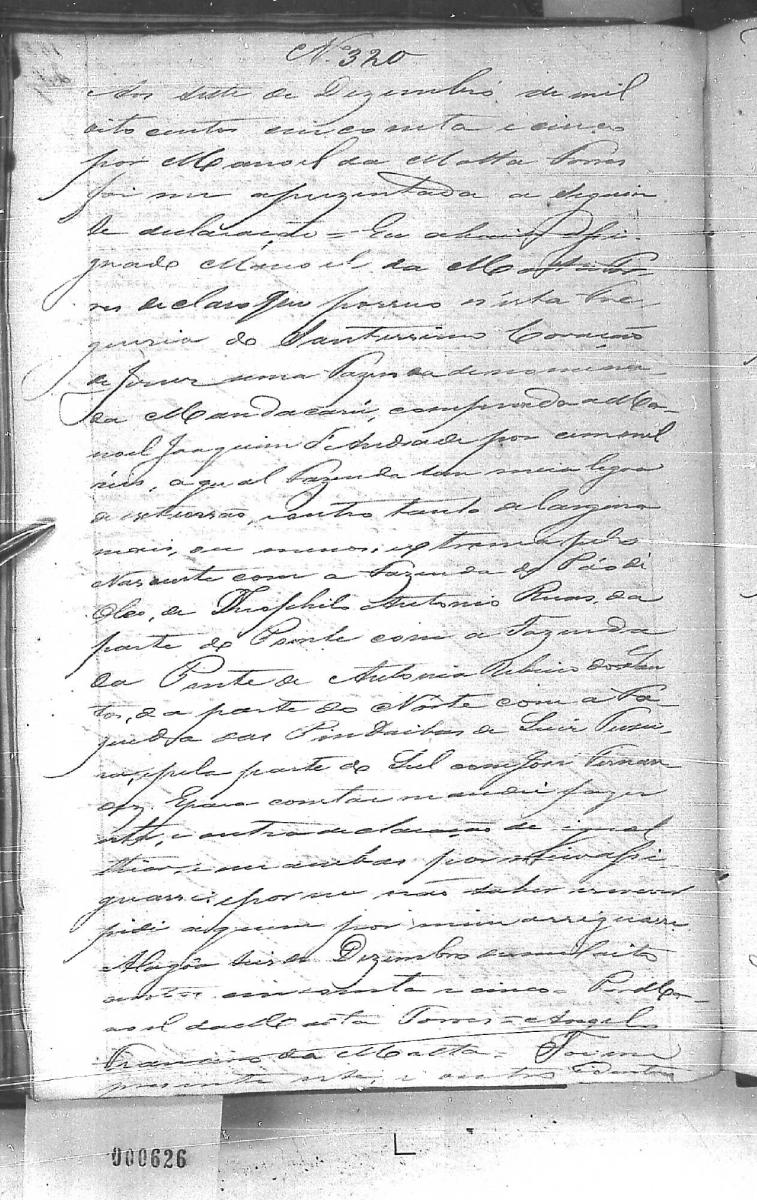 Nº 320
Aos sette de Dezembro de mil
oito centos cincoenta e cinco
por Manoel da Motta Torres
foi me aprezentada a seguin
te declaração = Eu abaixo assi
gnado Manoel da Motta Tor
res declaro que possuo n'esta Fre
guezia do Santissimo Coração
de Jesus uma Fazenda denomina
da Mandacarú, comprada a Ma
noel Joaquim d'Andrade por cem mil
reis, a qual Fazenda tem meia legoa
de extenssão, e outro tanto de largura
mais, ou menos, e extrema pelo
Nascente com a Fazenda do Páo d'
Oleo, de Theophilo Antonio Ruas, da
parte do Poente com a Fazenda
da Ponte de Antonio Ribeiro dos San
tos, da parte do Norte com a Fa
zenda das Pindaibas de Luis Teixei
ra, e pela parte do Sul com José Fernan
des. E para constar mandei fazer
esta, e outra declaração de igual
theor, e em ambas por me assi
gnarei, e por não saber escrever
pedi a quem por mim assignasse
Alagôa seis de Dezembro de mil oito
centos cincoenta e cinco = Por Ma
noel da Motta Torres = Angelo
Francisco da Motta = Foi me
presente esta, e outra
000626